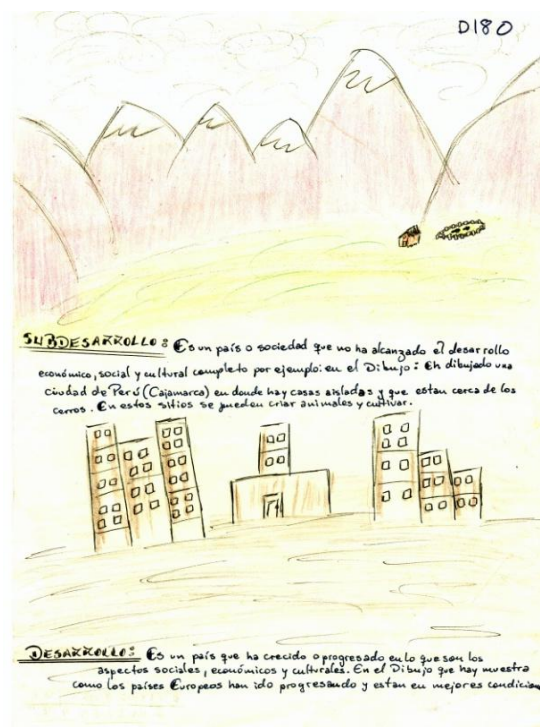 D180
SUBDESARROLLO: Es un país o sociedad que no ha alcanzado el desarrollo
económico, social y cultural completo por ejemplo: en el Dibujo: Eh dibujado una
ciudad de Perú (Cajamarca) en donde hay casas aisladas y que estan cerca de los
cerros. En estos sitios se pueden criar animales y cultivar.
DESARROLLO: Es un país que ha crecido o progresado en lo que son los
aspectos sociales, económicos y culturales. En el Dibujo que hay muestra
como los países Europeos han ido progresando y estan en mejores condicion